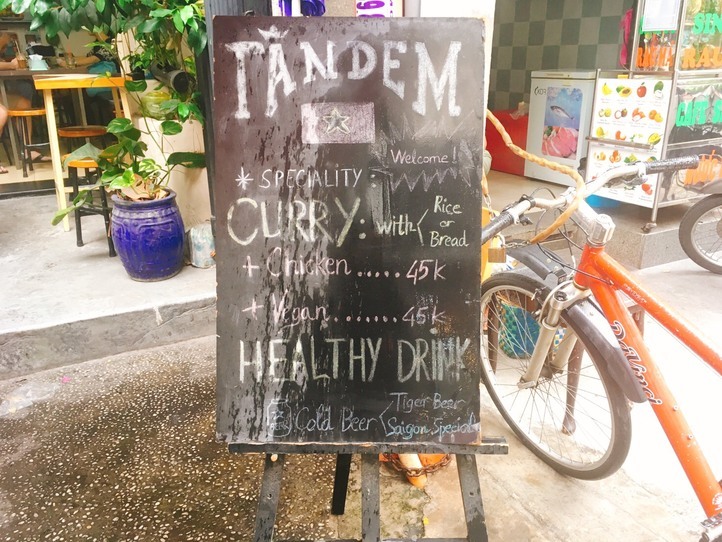 TÂNDEM
Welcome!
* SPECIALITY:
CURRY: with Rice
or
Bread
+ Chicken ..... 45k
+ Vegan ....... 45k
HEALTHY DRINK
Cold Beer Tiger Beer
Saigon Special
DaVinci